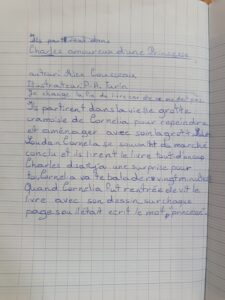 Ils partirent dans
Charles amoureux d'une Princesse
auteur: Alex Cousseau
illustrateur: P. A. Turin
Je change la fin du livre car elle ne me plaît pas
Ils partirent dans la vielle grotte
cramoisé de Cornelia pour repeindre
et aménager avec soin la grotte
Soudan Cornelia se souvint du marché
conclu et ils lirent le livre tout d'un coup
Charles dis j'ai une surprise pour
toi, Cornelia va te balader vingt minutes
Quand Cornelia fut rentrée de vit le
livre avec son dessin, sur chaque
page sou l'était écrit le mot princesse